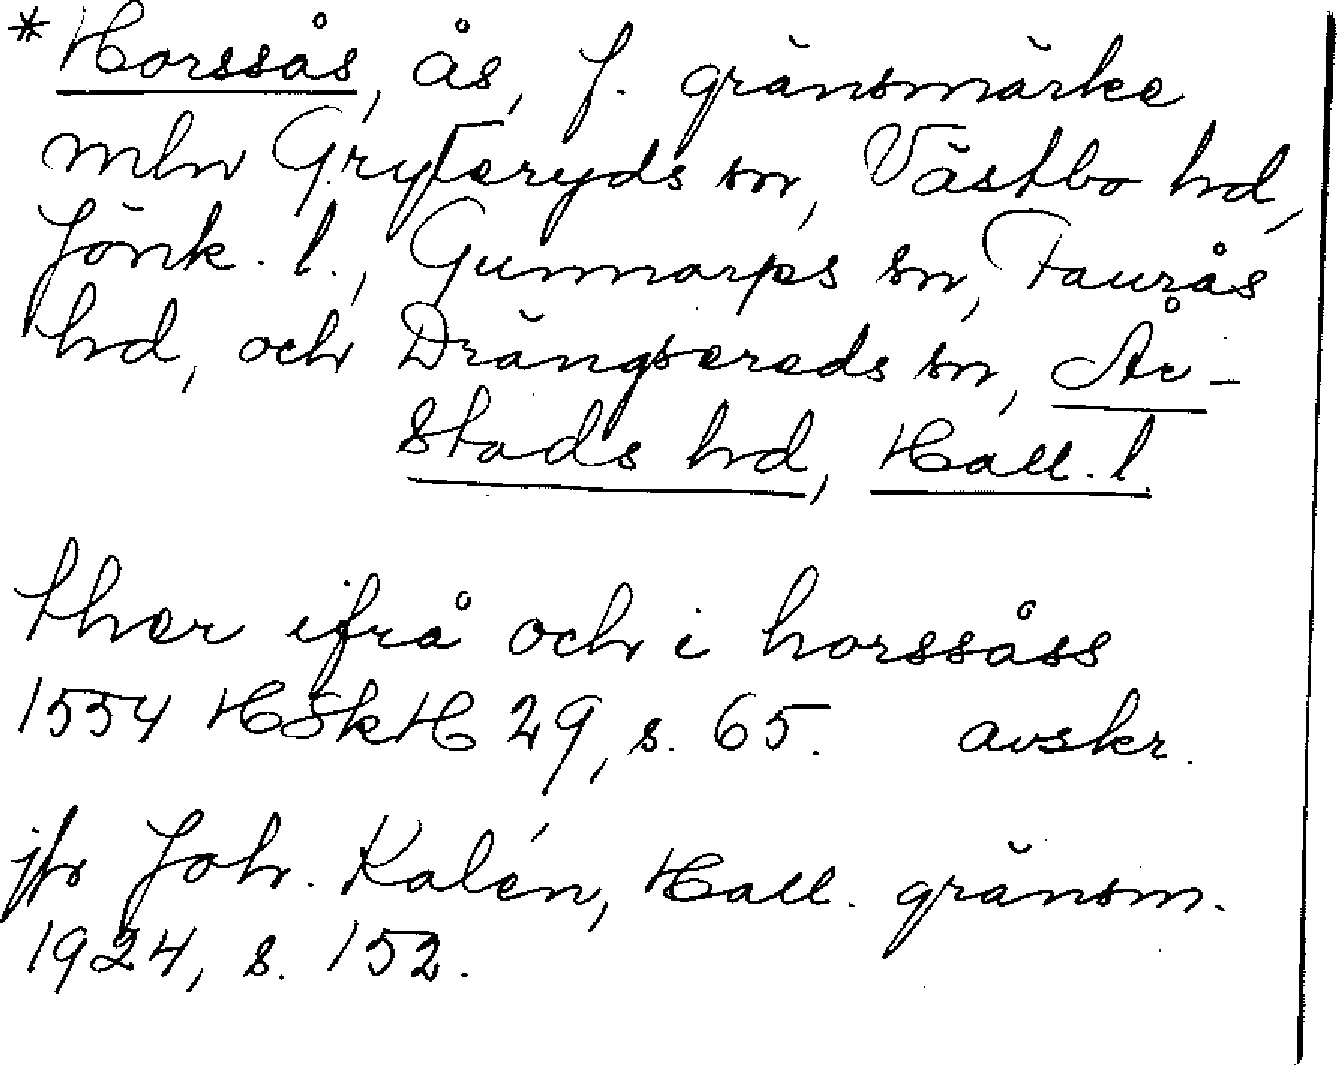 *Horssås, ås, f. gränsmärke
mln Gryteryds sn, Västbo hd,
Jönk. l., Gunnarps sn, Faurås
hd, och Drängsereds sn, År-
stads hd, Hall. l.
ther ifrå och i horssåss
1554 HSkH 29, s. 65. avskr.
jfr Joh. Kalén, Hall. gränsm.
1924, s. 152.